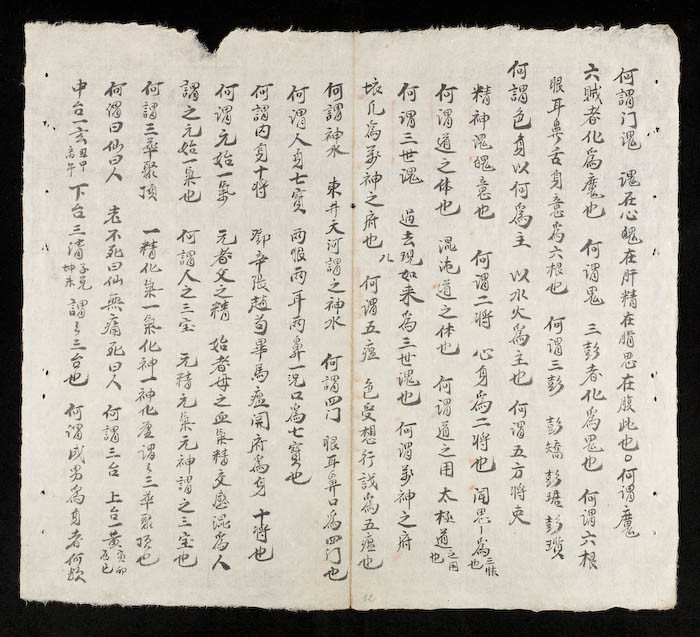 何謂门䰟 䰟在心魄在肝精在腎思在腹此也。何謂魔
六賊者化為魔也 何謂鬼 三彭者化為鬼也 何謂六根
眼耳鼻舌身意為六根也 何謂三彭 彭矯彭琚彭瓆
何謂色身以何為主 以水火為主也 何謂五方將吏
精神䰟魄意也 何謂二将 心身為二将也 聞思 為三昧也
何谓道之体也 混沌道之体也 何谓道之用 太極道之用也
何謂三世䰟 過去現如来為三世䰟也 何謂萬神之府
為萬神之府也 何謂五瘟 色受想行識為五瘟也
何謂神水 東井天河謂之神水 何謂四门 眼耳鼻口為四门也
何謂人身七寳 两眼两耳两鼻一口為七寳也
何謂内身十将 鄧辛張趙苟畢馬瘟関府為身十将也
何謂元始一氣 元者父之精 始者母之血氣精交感混為人
謂之元始一氣也 何謂人之三宝 元精元氣元神謂之三宝也
何謂三華聚頂 一精化氣一氣化神一神化虛謂之三華聚頂也
何謂曰仙曰人 老不死曰仙無痛死曰人 何謂三台 上台一黄寅卯辰巳
中台一玄 下台三濤 謂之三台也 何謂成男為身者何